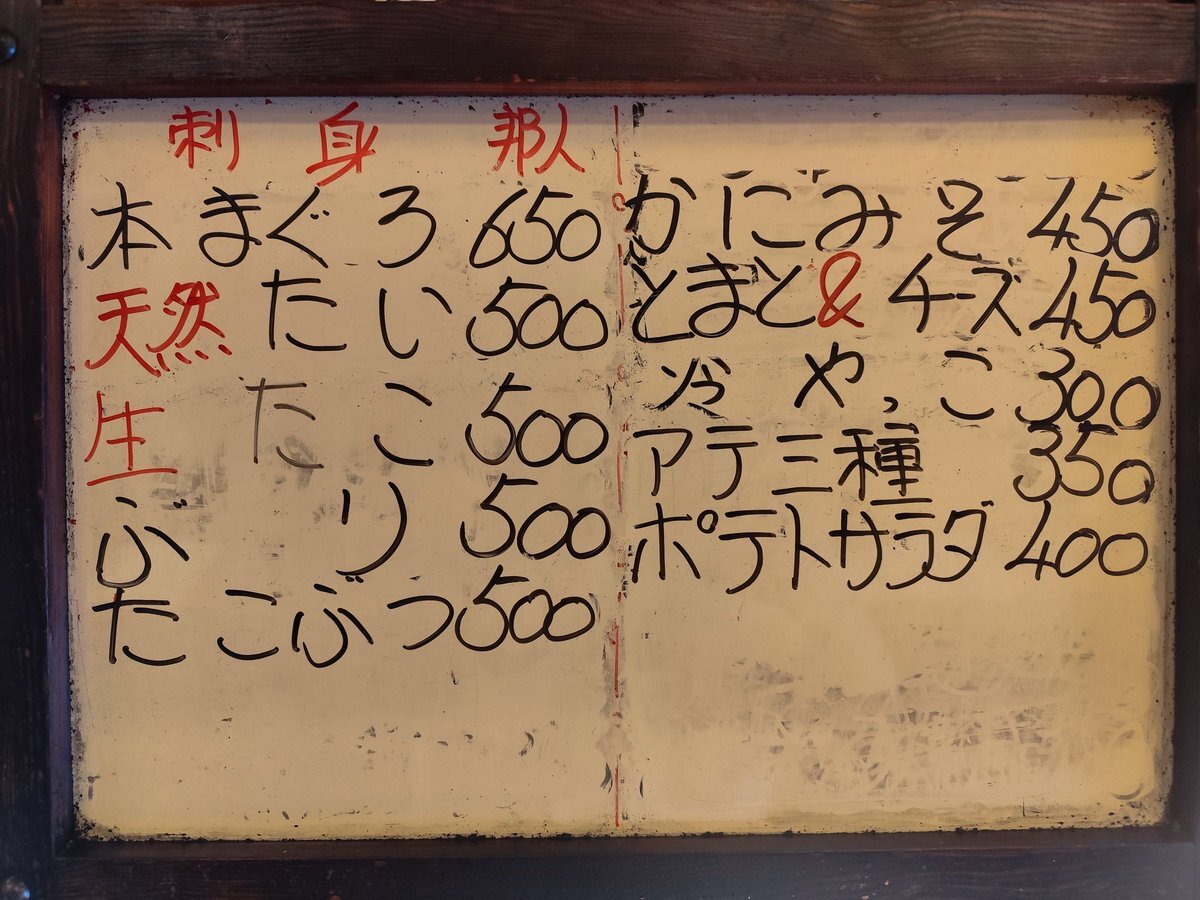 刺身 邦人
本まぐろ 650
天然たい 500
生たこ 500
ぶり 500
たこぶつ 500
かにみそ 450
とまと&チーズ 450
冷やっこ 300
アテ三種 350
ポテトサラダ 400